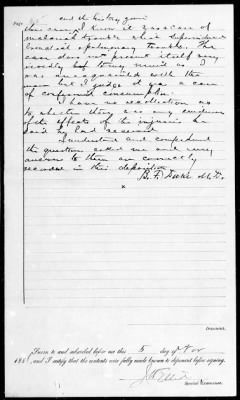 Page
and the history given
the case, I knew it was a case of
malarial trouble which superinduced
bronchial & pulmonary trouble. The
case does not present itself very
vividly but to my mind as I
was unacquainted with the
man but I judge it was a case
of confirmed consumption.
I have no recollection as
to whether there was any evidence
of the effects of the injuries he
said he had received
I understand and comprehend
the questions asked me and my
answers to them are correctly
recorded in this deposition.
B. F. M.D.
x
Deponent.
Sworn to and subscribed before me this 5 day of Nov
188 , and I certify that the contents were fully made known to deponent before signing.
Special Examiner.